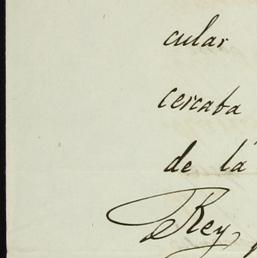 cular
cercaba
de la
Rey